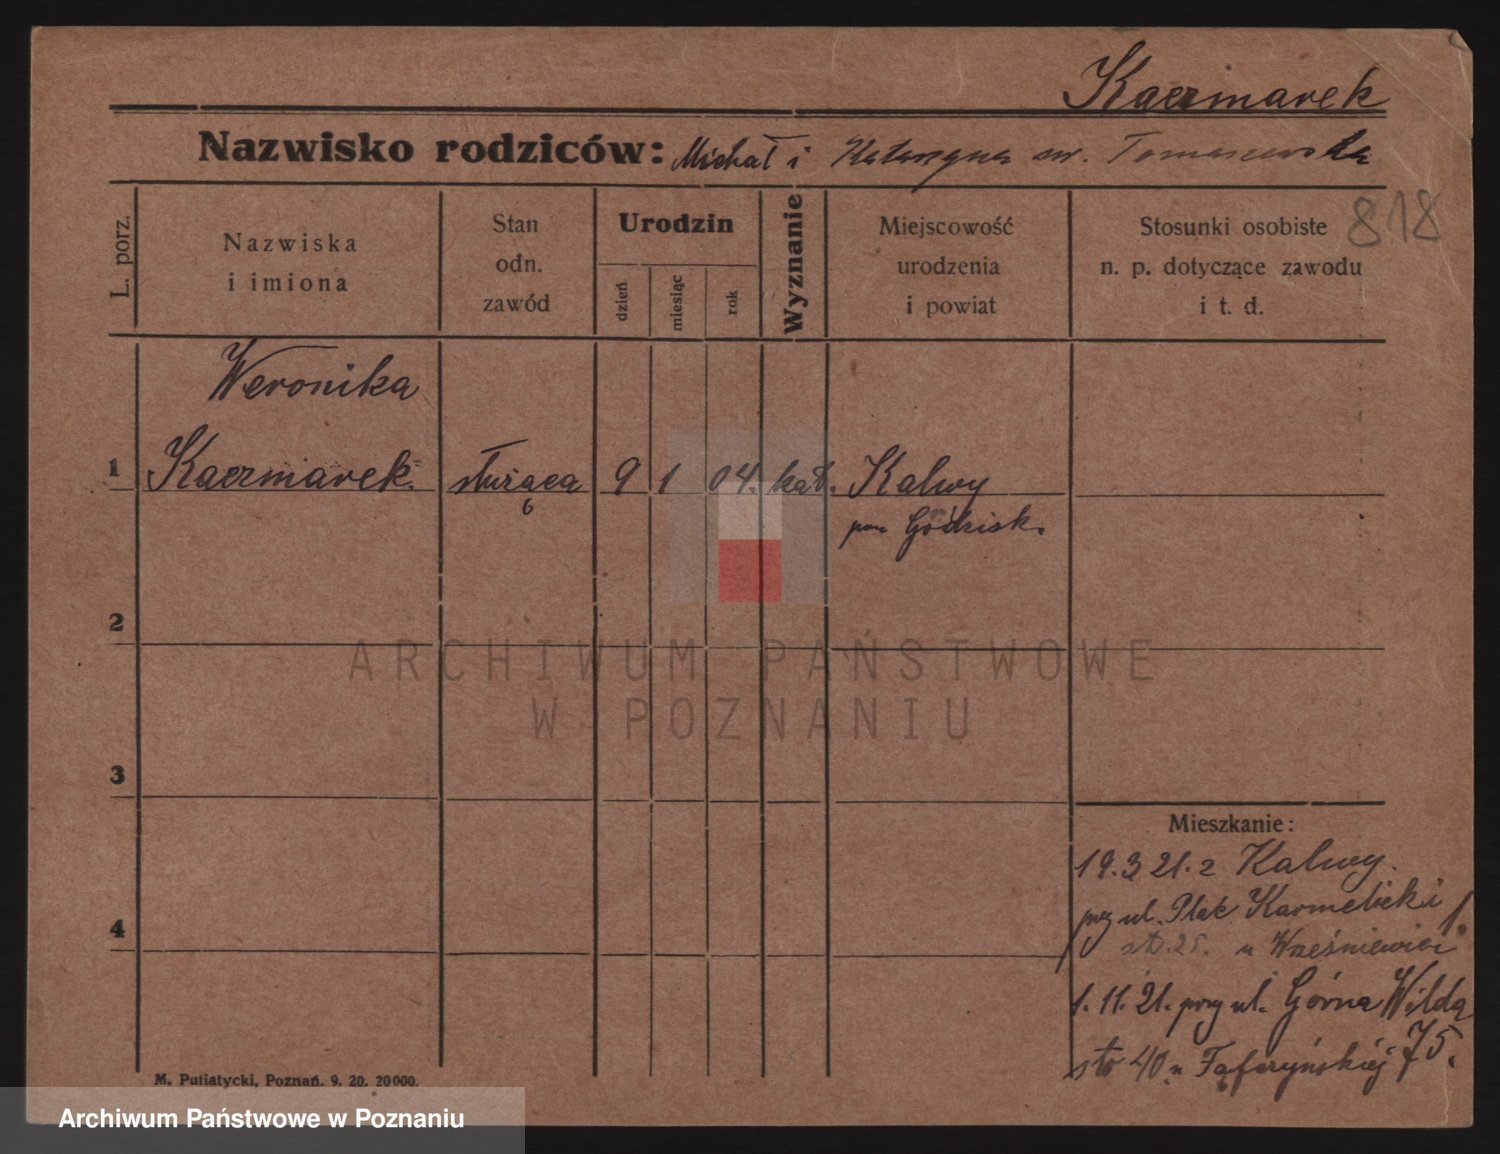 Kaczmarek
Nazwisko rodziców: Michał i Katarzyna ur. Tomaszewska
818
L. porz.
Nazwiska
i imiona
Stan
odn.
zawód
Urodzin
dzień
miesiąc
rok
Wyznanie
Miejscowość
urodzenia
i powiat
Stosunki osobiste
n. p. dotyczące zawodu
i t. d.
Weronika
1 Kaczmarek. służąca 9 1 04. kat. Kalwy
6
pow Godzisk.
2
3
4
Mieszkanie:
19.3 21. z Kalwy.
przy ul. Plac Karmelicki
sto. 25. u Wześniewicz
1. 11. 21. przy ul. Górna Wilda 75.
sto 40 u
M. Putiatycki, Poznań. 9. 20. 20000.
ARCHIWUM PAŃSTWOWE
W POZNANIU
Archiwum Państwowe w Poznaniu